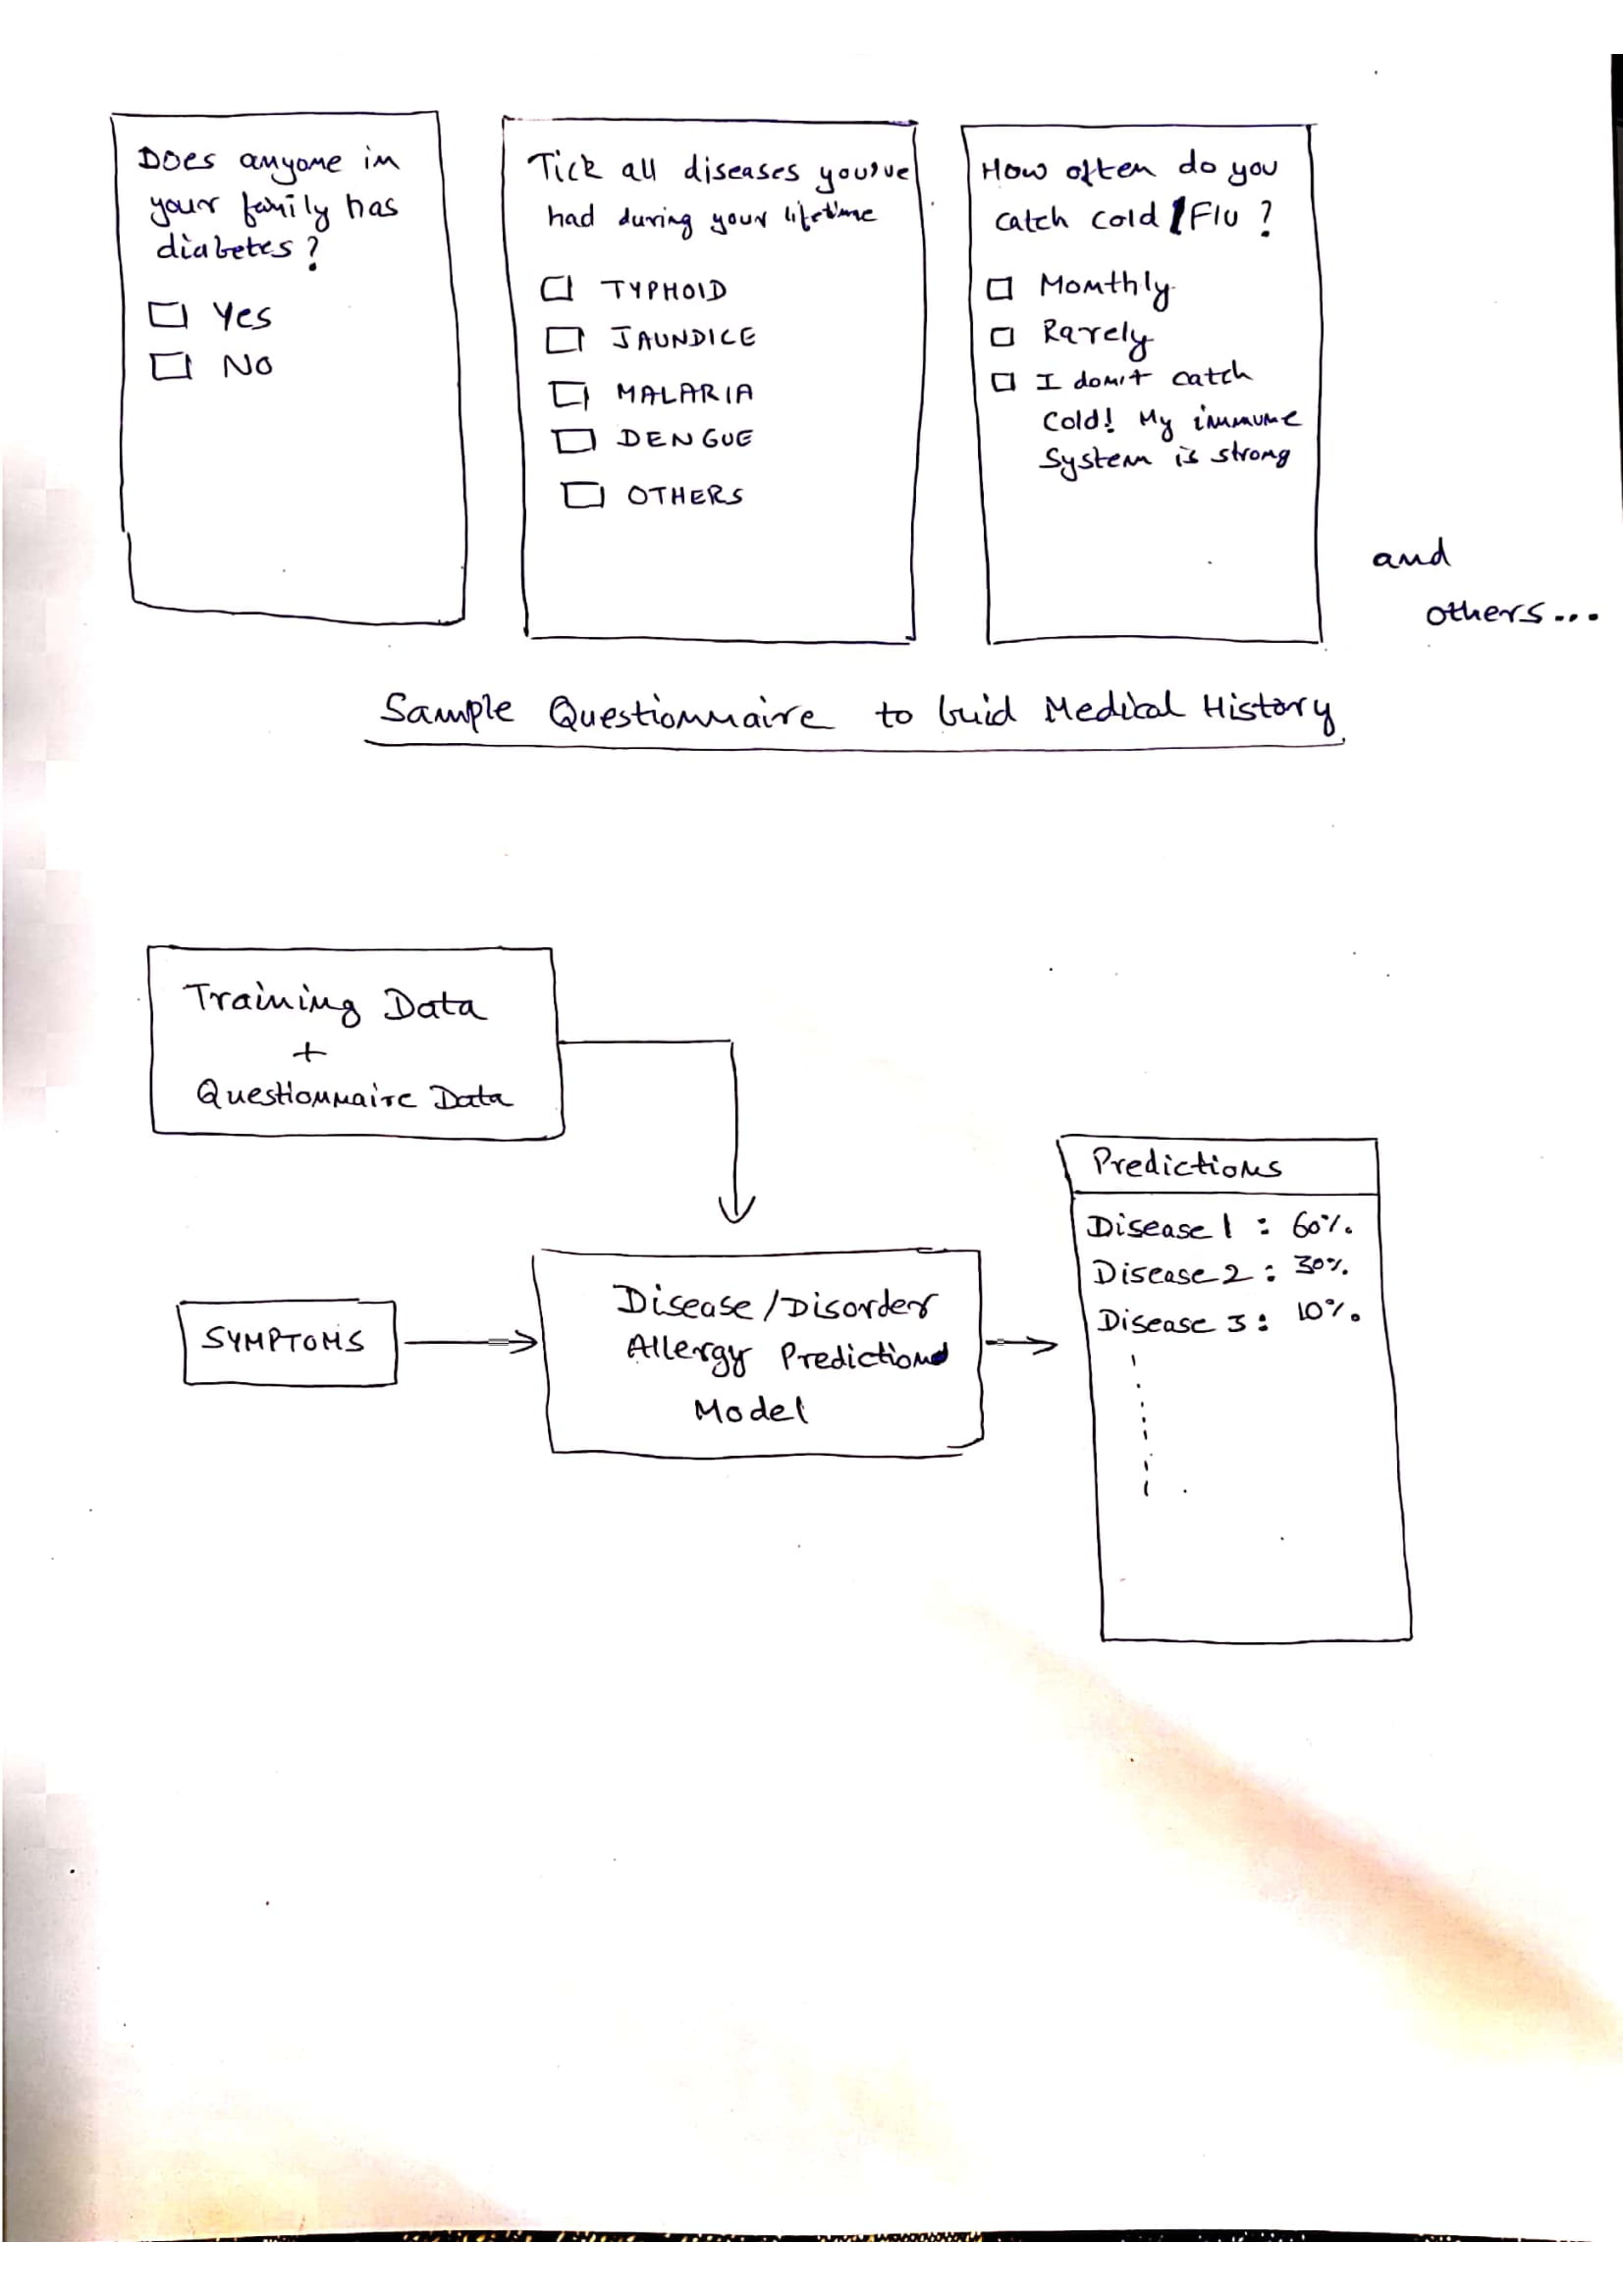 Does anyone in
your family has
diabetes?
Yes
No
Tick all diseases you've
had during your lifetime
TYPHOID
JAUNDICE
MALARIA
DENGUE
OTHERS
How often do you
catch cold/Flu?
Monthly
Rarely
I don't catch
cold! My immune
System is strong
and
others...
Sample Questionnaire to buid Medical History
Training Data
+
Questionnaire Data
SYMPTOMS
Disease/Disorder
Allergy Prediction
Model
Predictions
Disease 1 : 60%.
Disease 2 : 30%.
Disease 3 : 10%.